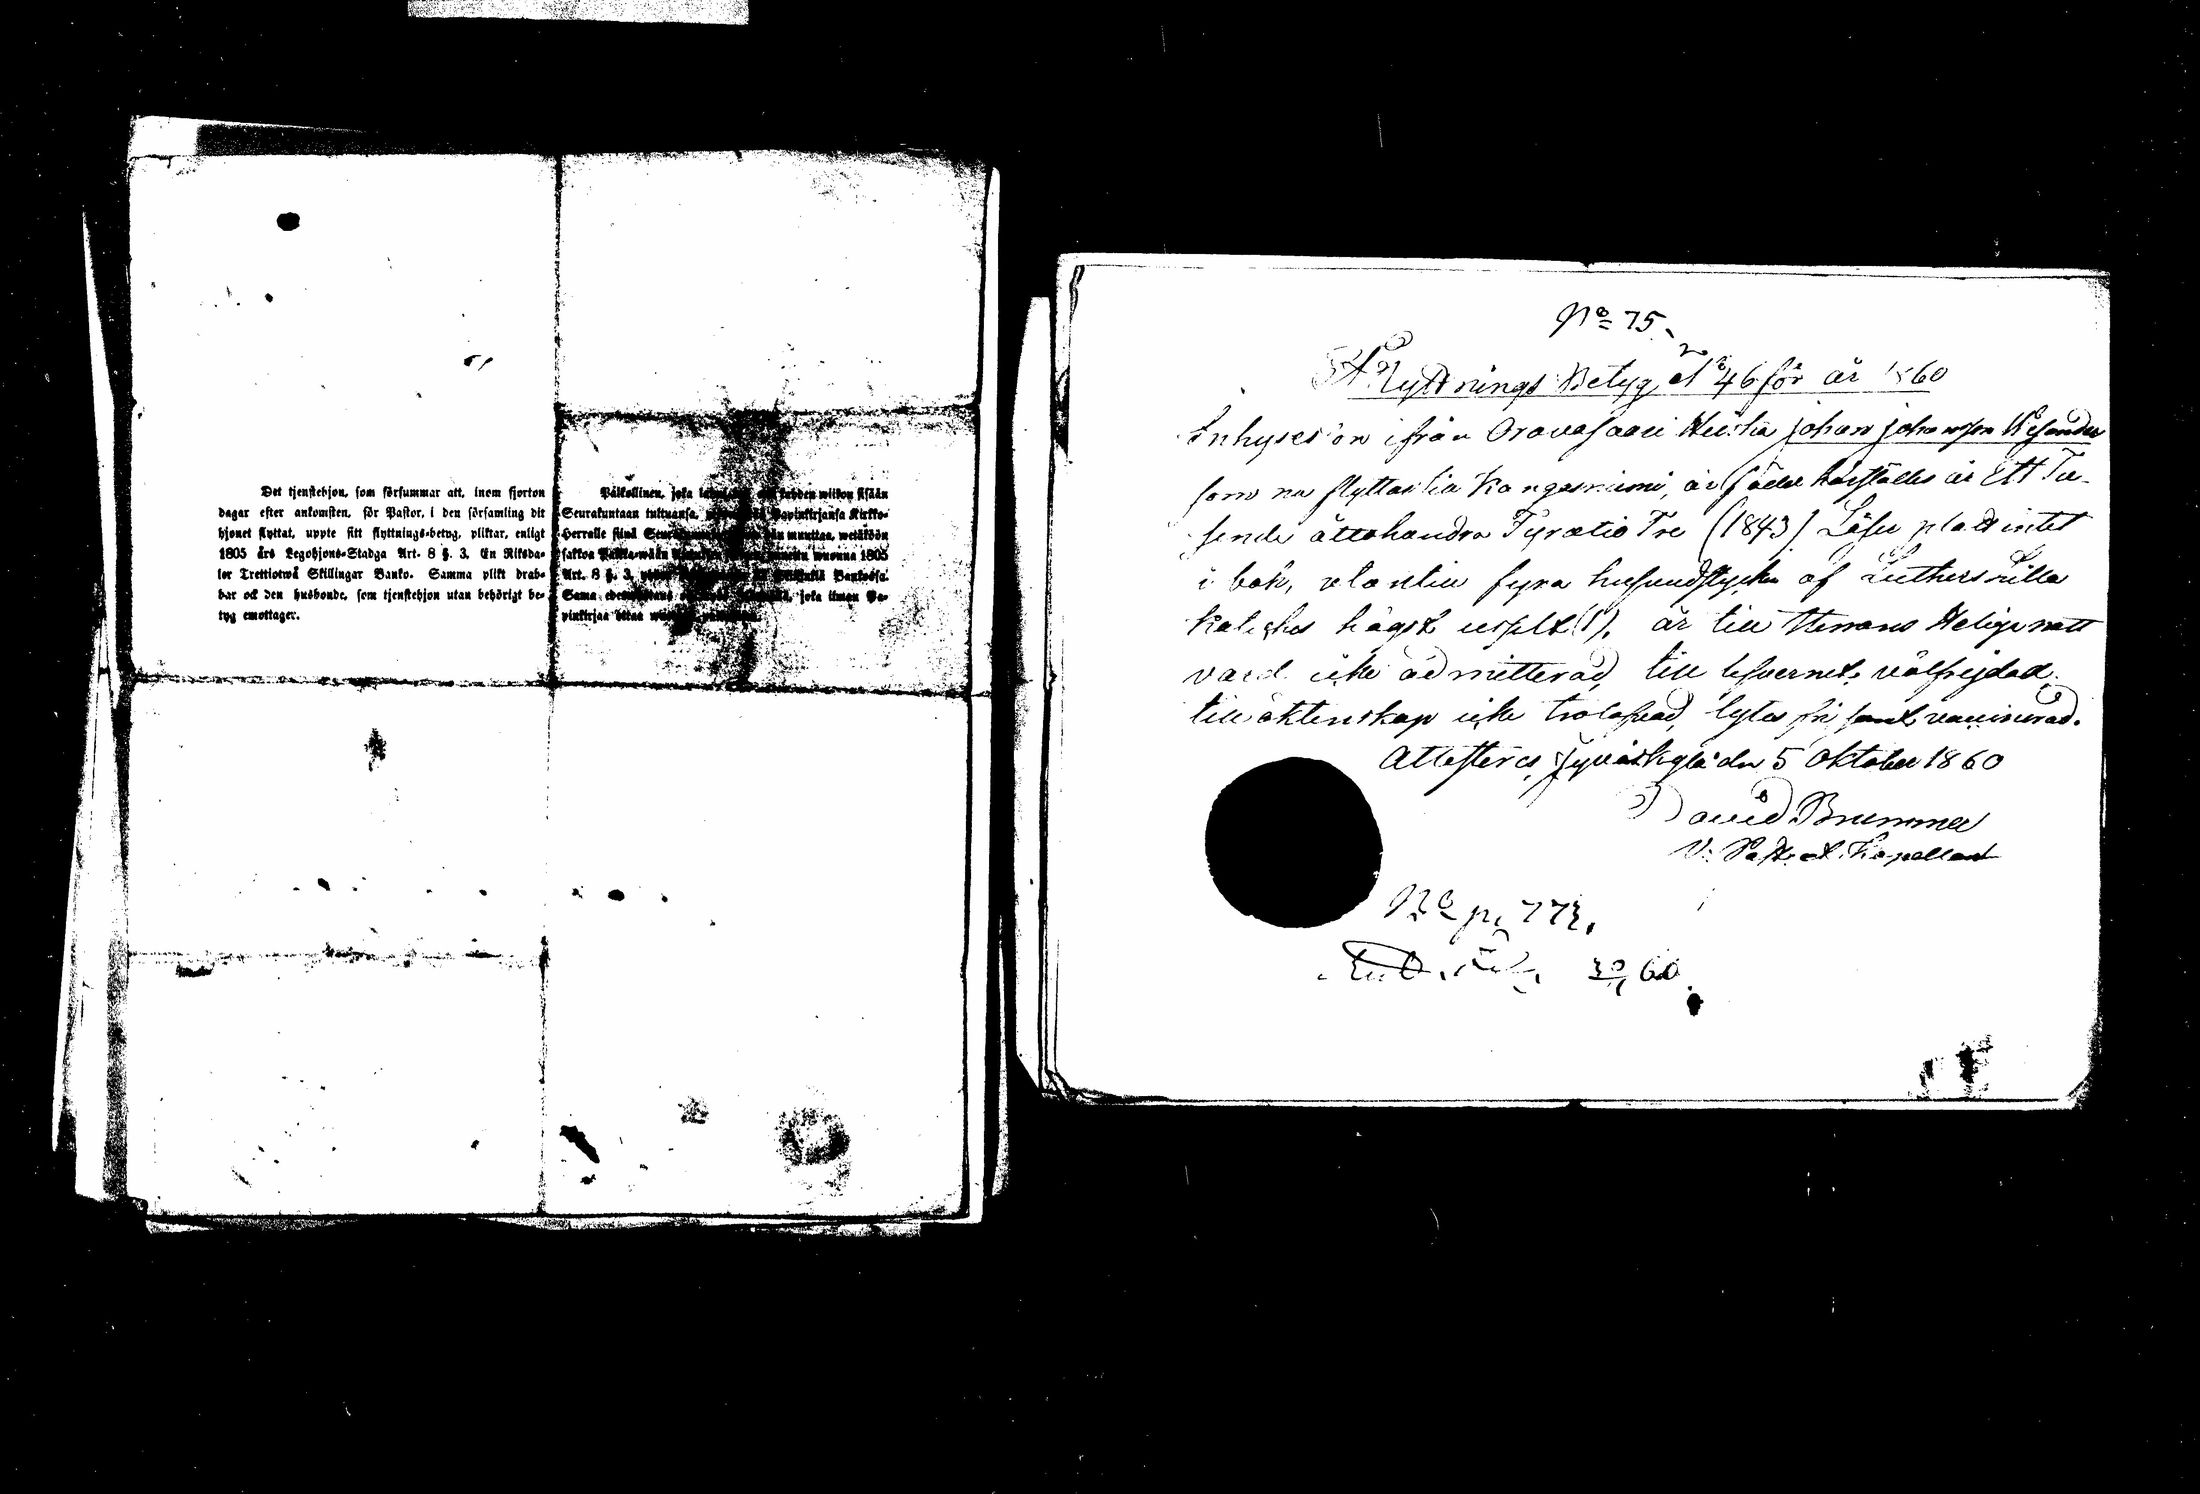 Det tjenstehjon, som försummar att, inom fjorton
dagar efter ankomsten, för Pastor, i den församling dit
hjonet flyttat, uppte sitt flyttnings-betyg, pliktar, enligt
1805 års Legohjons-Stadga Art. 8 §. 3. En Riksda-
ler Trettiotwå Skillingar Banko. Samma plikt drab-
bar ock den husbonde, som tjenstehjon utan behörigt be-
tyg emottager.
Palkollinen, joka kahden wiikon sisään
Seurakuntaan tultuansa, Papinkirjansa Kirkko-
Herralle siinä hän muuttaa, wetäköön
sakkoa wuonna 1805
Art. 8 §. 3. Bankossa.
Sama joka ilman Pa-
pinkirjaa ottaa
No 75.
Flyttnings Betyg No 46 för år 1860
Inhyses son ifrån Oravasaari Johan Johansson
som nu flyttar till Kangasniemi, är född härstädes år Ett Tu-
sende åttahundra Fyratio Tre (1843) Läser platt intet
i bok, utantill fyra hufvudstycken af Luthers Lilla
Katekes högst uselt (1). är till Herrans Helige natt
vard icke admitterad, till lefvernet välfrejdad,
till äktenskap icke trolofvad, lytes fri samt vaccinerad.
Attesteras, Jyväskylä den 5 Oktober 1860
David Brummer
V. Past. Kapellan
No p. 773.
60